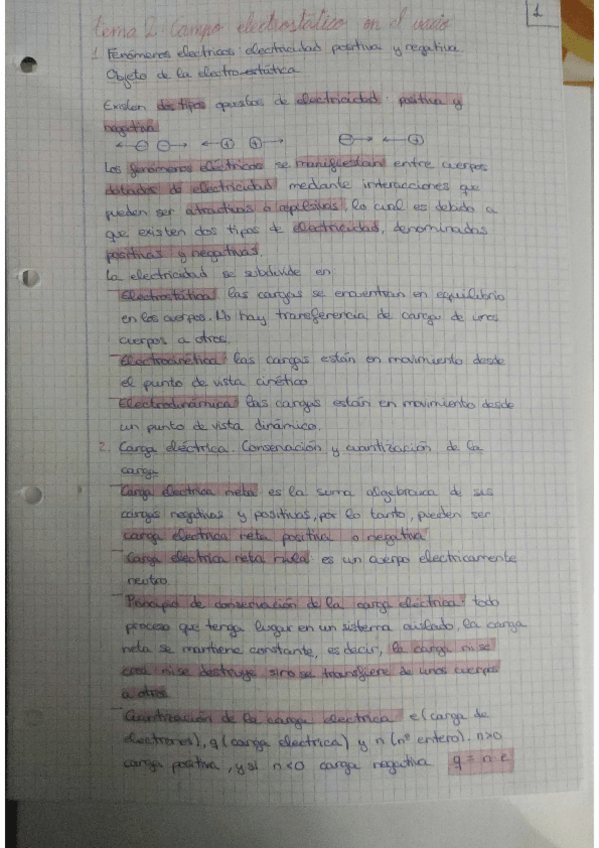 1
tema 2: Campo electrostático en el vacío
1. Fenómenos electricos: electricidad positiva y negativa.
Objeto de la electroestática
Existen dos tipos opuestos de electricidad: positiva y
negativa
← ⊖ ⊖ → ← ⊕ ⊕ → ⊖ → ← ⊕
Los fenómenos eléctricos se manifiestan entre cuerpos
dotados de electricidad mediante interacciones que
pueden ser atractivas o repulsivas, lo cual es debido a
que existen dos tipos de electricidad, denominadas
positivas y negativas.
La electricidad se subdivide en:
Electrostática: las cargas se encuentran en equilibrio
en los cuerpos. No hay transferencia de carga de unos
cuerpos a otros.
Electrocinética: las cargas están en movimiento desde
el punto de vista cinético
Electrodinámica: las cargas están en movimiento desde
un punto de vista dinámico.
2. Carga eléctrica. Conservación y cuantización de la
carga.
Carga electrica neta es la suma algebraica de sus
cargas negativas y positivas, por lo tanto, pueden ser
carga electrica neta positiva o negativa
Carga electrica neta nula: es un cuerpo electricamente
neutro.
Principio de conservación de la carga eléctrica: todo
proceso que tenga lugar en un sistema aislado, la carga
neta se mantiene constante, es decir, la carga ni se
crea ni se destruye sino se transfiere de unos cuerpos
a otros
Cuantización de la carga electrica: e (carga de
electrones), q (carga electrica) y n (nº entero). n>0
carga positiva, y si n<0 carga negativa. q = n·e